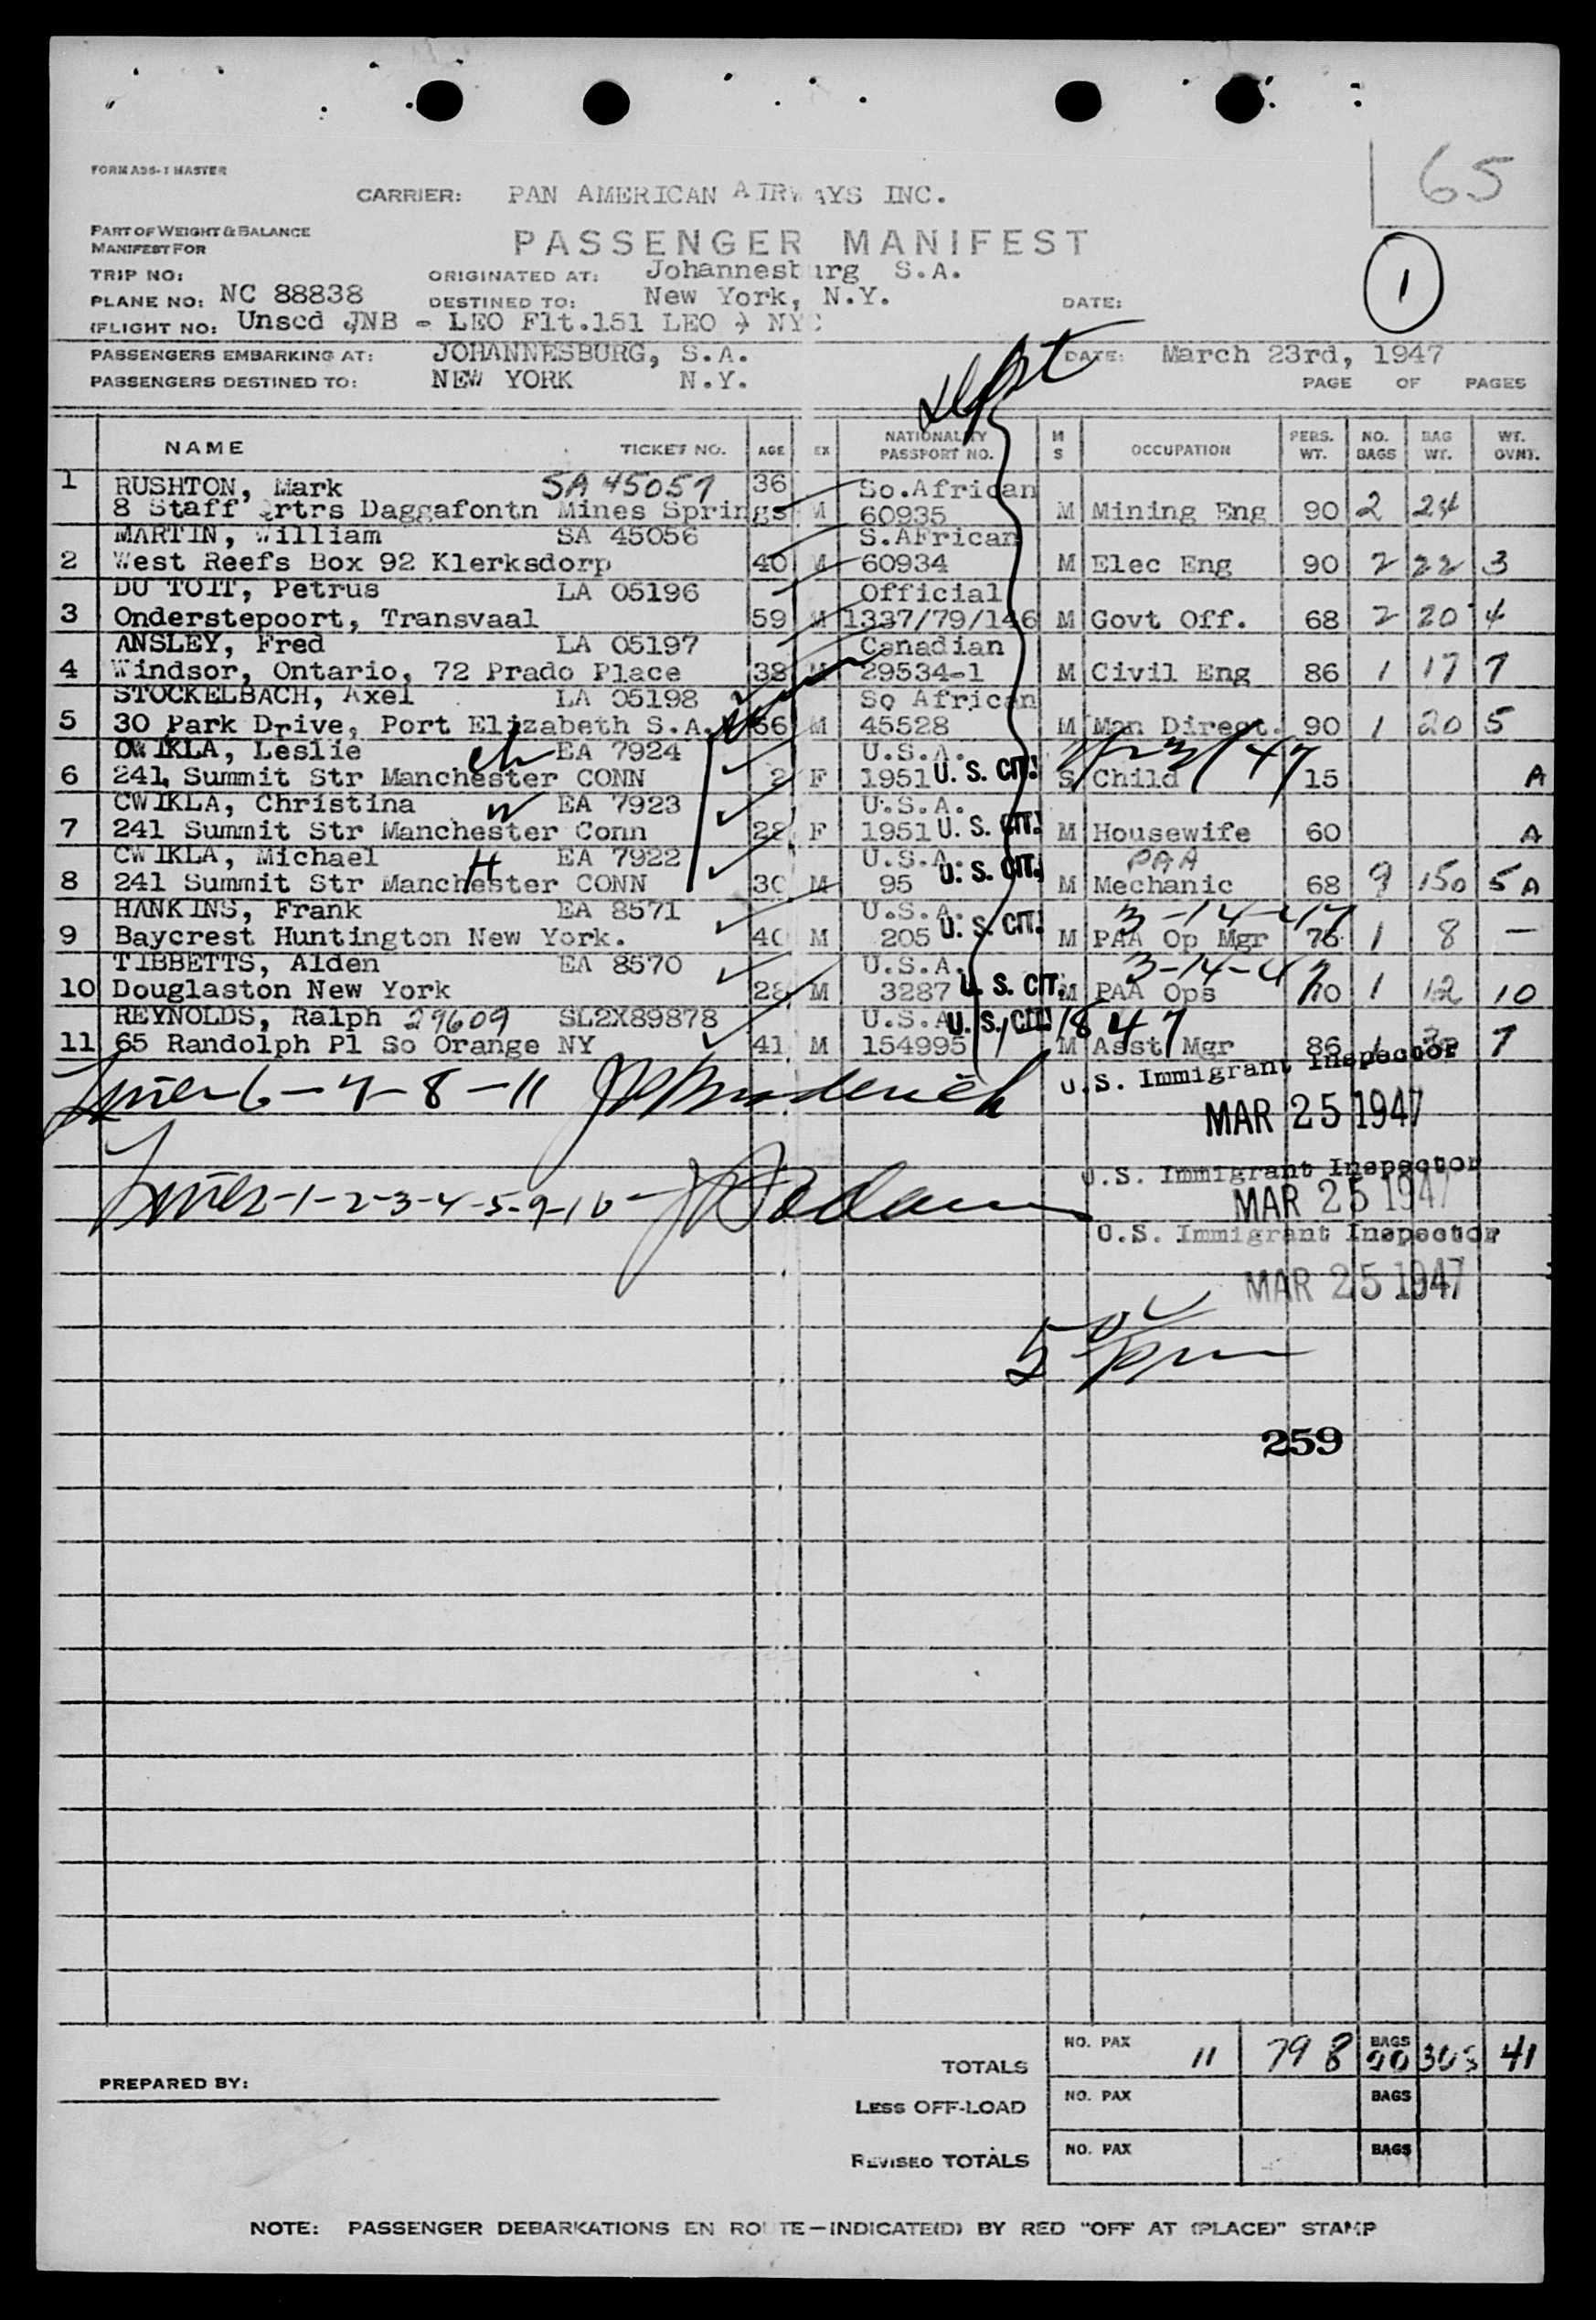 65
FORM A36-1 MASTER
CARRIER: PAN AMERICAN AIRWAYS INC.
PART OF WEIGHT & BALANCE
MANIFEST FOR
PASSENGER MANIFEST
1
TRIP NO: ORIGINATED AT: Johannesburg S.A.
PLANE NO: NC 88838 DESTINED TO: New York, N.Y. DATE:
(FLIGHT NO: Unscd JNB - LEO Flt.151 LEO → NYC
PASSENGERS EMBARKING AT: JOHANNESBURG, S.A. DATE: March 23rd, 1947
PASSENGERS DESTINED TO: NEW YORK N.Y. PAGE OF PAGES
NAME TICKET NO. AGE EX NATIONALITY PASSPORT NO. M S OCCUPATION PERS. WT. NO. BAGS BAG WT. WT. OVNT.
1 RUSHTON, Mark SA 45057 36 So.African
8 Staff Qrtrs Daggafontn Mines Springs M 60935 M Mining Eng 90 2 24
MARTIN, William SA 45056 S.African
2 West Reefs Box 92 Klerksdorp 40 M 60934 M Elec Eng 90 2 22 3
DU TOIT, Petrus LA 05196 Official
3 Onderstepoort, Transvaal 59 M 1337/79/146 M Govt Off. 68 2 20 4
ANSLEY, Fred LA 05197 Canadian
4 Windsor, Ontario, 72 Prado Place 38 M 29534-1 M Civil Eng 86 1 17 7
STOCKELBACH, Axel LA 05198 So African
5 30 Park Drive, Port Elizabeth S.A. 56 M 45528 M Man Direct. 90 1 20 5
CWIKLA, Leslie ch EA 7924 U.S.A.
6 241 Summit Str Manchester CONN 2 F 1951 U. S. CIT. S Child 15 A
CWIKLA, Christina W EA 7923 U.S.A.
7 241 Summit Str Manchester Conn 28 F 1951 U. S. CIT. M Housewife 60 A
CWIKLA, Michael H EA 7922 U.S.A. PAA
8 241 Summit Str Manchester CONN 30 M 95 U. S. CIT. M Mechanic 68 9 150 5 A
HANKINS, Frank EA 8571 U.S.A. 3-14-47
9 Baycrest Huntington New York. 40 M 205 U. S. CIT. M PAA Op Mgr 75 1 8 —
TIBBETTS, Alden EA 8570 U.S.A. 3-14-47
10 Douglaston New York 28 M 3287 U. S. CIT. M PAA Ops 70 1 12 10
REYNOLDS, Ralph 29609 SL2X89878 U.S.A.
11 65 Randolph Pl So Orange NY 41 M 154995 U. S. CIT. M Asst Mgr 86 1 7
Lines 6-7-8-11 U.S. Immigrant Inspector
MAR 25 1947
U.S. Immigrant Inspector
Lines-1-2-3-4-5-9-10- MAR 25 1947
U.S. Immigrant Inspector
MAR 25 1947
5 00 pm
259
TOTALS NO. PAX 11 798 BAGS 305 41
PREPARED BY:
LESS OFF-LOAD NO. PAX BAGS
REVISED TOTALS NO. PAX BAGS
NOTE: PASSENGER DEBARKATIONS EN ROUTE—INDICATE(D) BY RED "OFF AT (PLACE)" STAMP